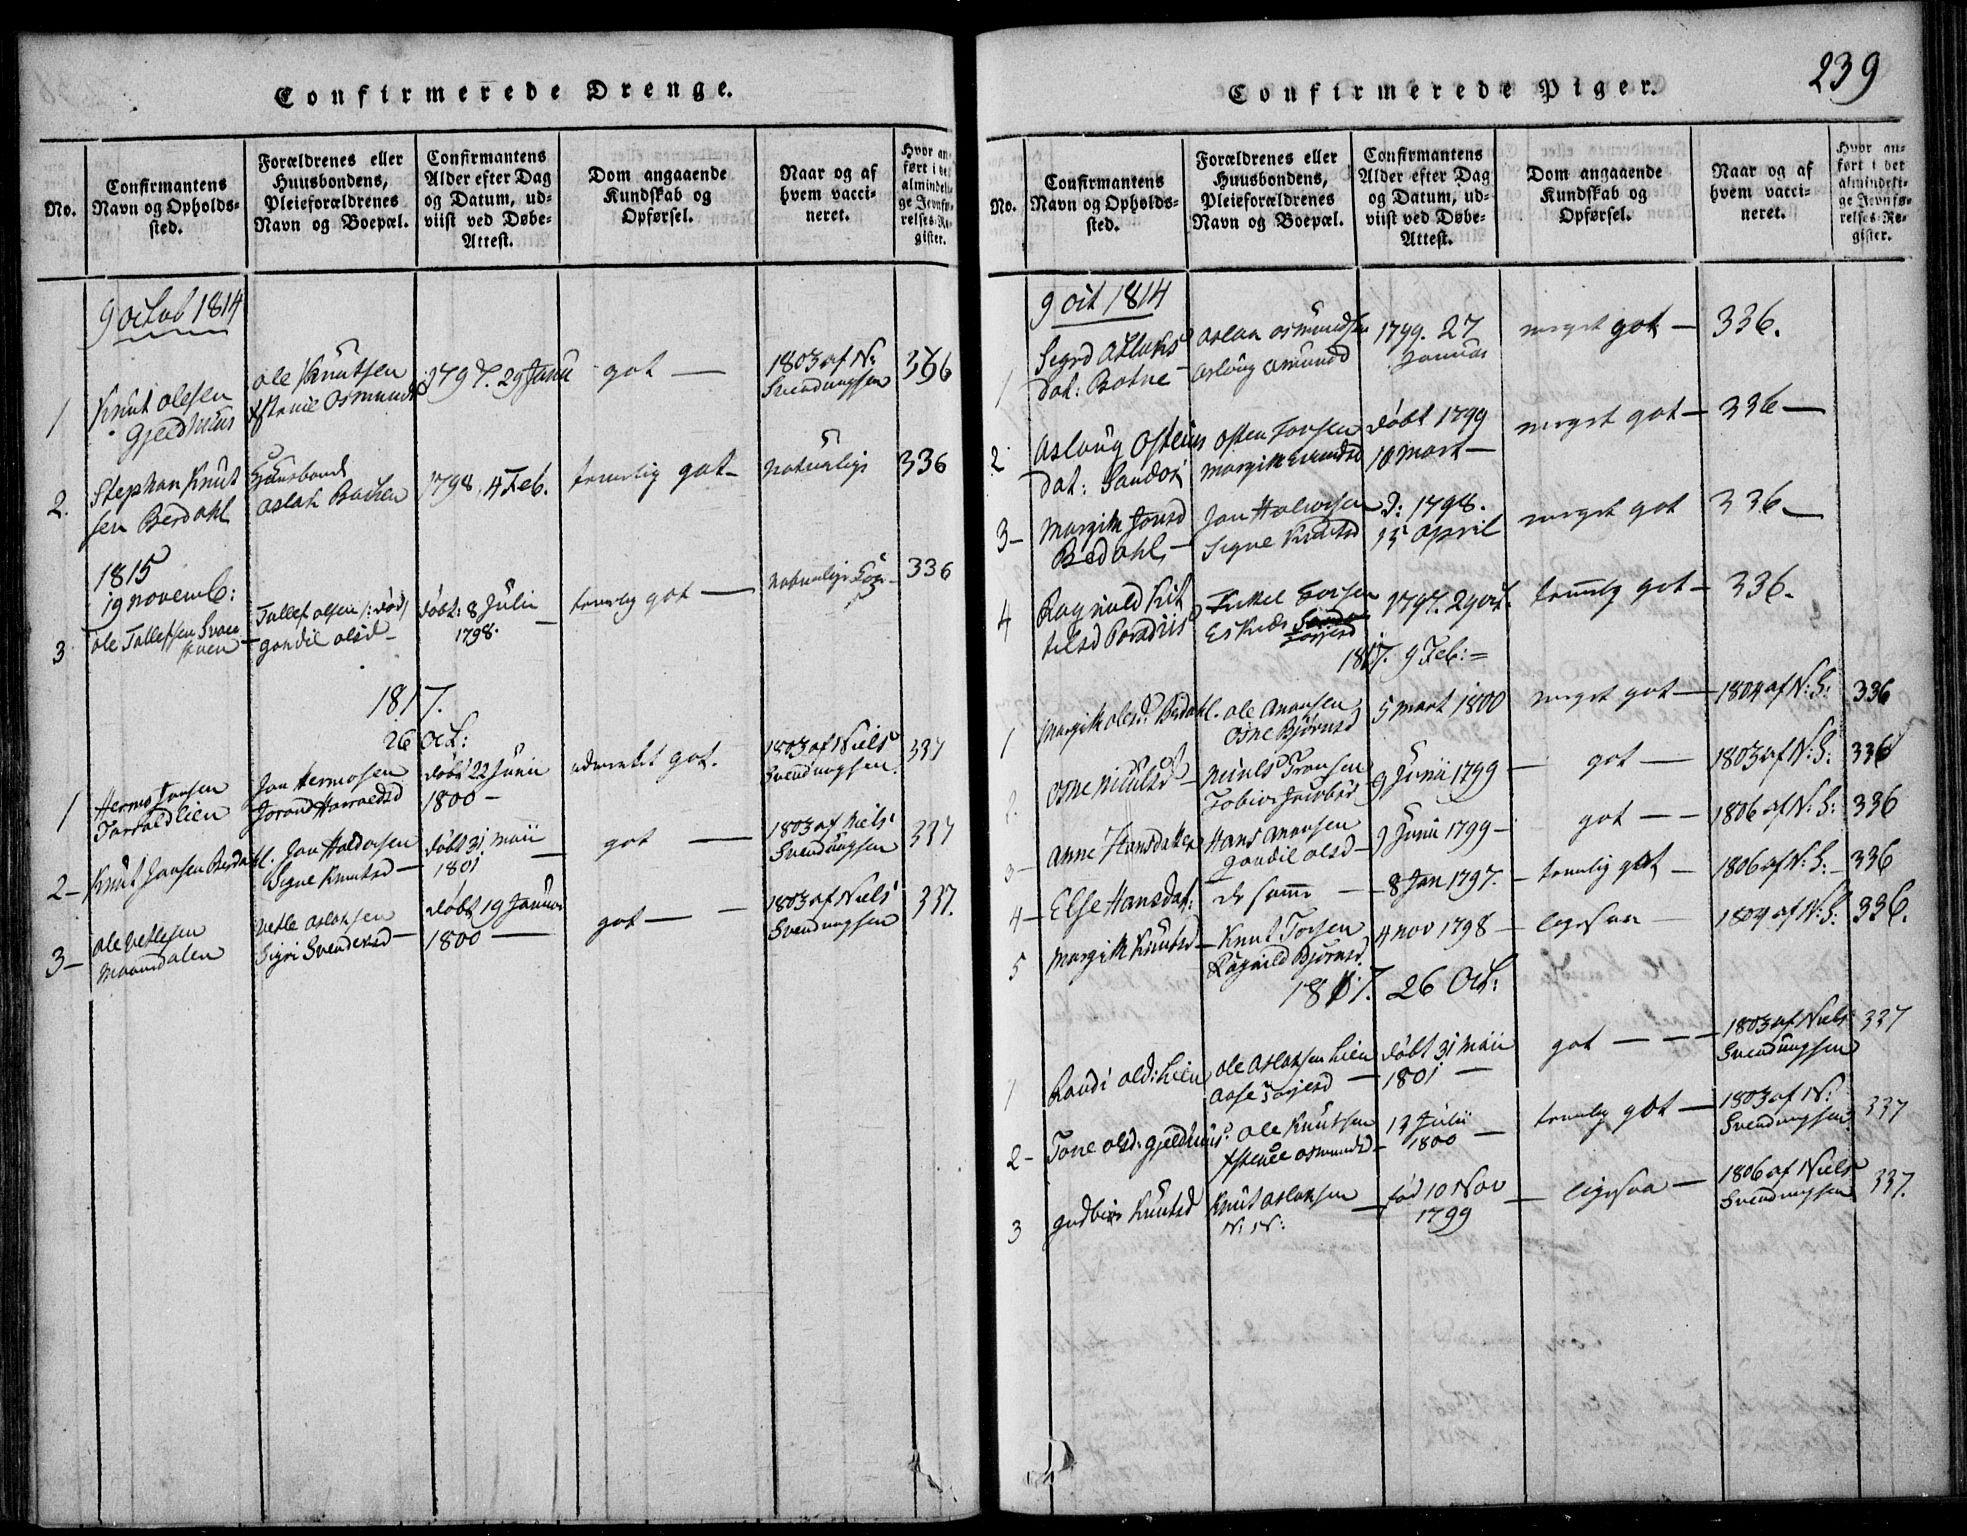 Confirmerede Drenge.
No.
Confirmantens
Navn og Opholds-
sted.
Forældrenes eller
Huusbondens,
Pleieforældrenes
Navn og Boepæl.
Confirmantens
Alder efter Dag
og Datum, ud-
viist ved Døbe-
Attest.
Dom angaaende
Kundskab og
Opførsel.
Naar og af
hvem vacci-
neret.
Hvor an-
ført i det
almindeli-
ge Jevnfø-
relses-Re-
gister.
9 Octob 1814
1
Knut Olesen
Gjeldhuus
Ole Knutsen
Osmunds
1797. 29 Janu
got —
1803 af N:
Svendungsen
336
2.
Stephan Knut
sen Berdahl
Huusbond
Aslak Bakken
1798, 4 Feb.
temelig got —
Naturlige
336
1815
19 Novemb:
3
Ole Tallefsen
Tallef Olsen /: død/
Gondil Olsd —
Døbt: 8 Julii
1798.
temelig got —
Naturlige
336
1817.
26 Oct:
1
Hermo Jonsen
Jon Hermosen
Døbt 22 Junii
1800 —
udmerket got.
1803 af Niels
Svendungsen
337
2 —
Knut Jonsen Berdahl.
Jon Haldorsen
Signe Knutsd —
Døbt 31 Maii
1801
got —
1803 af Niels
Svendungsen
337
3 —
Ole Vetlesen
Vetle Aslaksen
Døbt 19 Januar
1800 —
got — —
1803 af Niels
Svendungsen
337.
239
Confirmerede Piger.
No.
Confirmantens
Navn og Opholds-
sted.
Forældrenes eller
Huusbondens,
Pleieforældrenes
Navn og Boepæl.
Confirmantens
Alder efter Dag
og Datum, ud-
viist ved Døbe-
Attest.
Dom angaaende
Kundskab og
Opførsel.
Naar og af
hvem vacci-
neret.
Hvor an-
ført i det
almindeli-
ge Jevnfø-
relses-Re-
gister.
9 Oct 1814
1
Sigrd Aslaks
dat: Botne
Aslak Osmundsen
Aslaug Amund
1799. 27
Januar
meget got —
336.
2
Aslaug Osteins
dat: Sandøi
Osten Jonsen
Døbt 1799
10 Mart —
meget got —
336 —
3 —
Margith Jonsd
Berdahl —
Jon Halvorsen
Signe Knutsd
D: 1798.
15 April
meget got
336 —
4
Ragnild Kit
tilsd
1797. 29 Oct.
temelig got —
336.
1817. 9 Feb: =
1
Margith Olesd: Berdahl.
Ole Anonsen
Osne Bjørnsd
5 Mart 1800
meget got —
1804 af N: S:
336
2.
Osne Nielsd —
Niels Tronsen
9 Junii 1799 —
got —
1803 af N: S:
336
3 —
Anne Hansdatter
Hans Anonsen
Gondil Olsd —
9 Junii 1799 —
got — —
1806 af N: S:
336
4 —
Else Hansdat:
de samme —
8 Jan 1797. —
temelig got —
1806 af N: S: —
336
5
Margith Knutsd —
Knut Torsen
Ragnild Bjørnsd.
4 Nov 1798 —
ligesaa —
1804 af N: S:
336.
1817. 26 Oct:
1
Randi Olsd: Lien
Ole Aslaksen Lien
Aase Torjersd —
Døbt 31 Maii
1801 —
got — — —
1803 af Niels
Svendungsen
337
2 —
Tone Olsd: Gjeldhuus
Ole Knutsen
Osmundsd —
13 Julii
1800 —
temelig got —
1803 af N:
Svendungsen
337
3
Gudbior Knutsd
Knut Aslaksen
N: N: —
fød 10 Nov
1799 —
ligesaa —
1806 af Niels
Svendungsen
337.